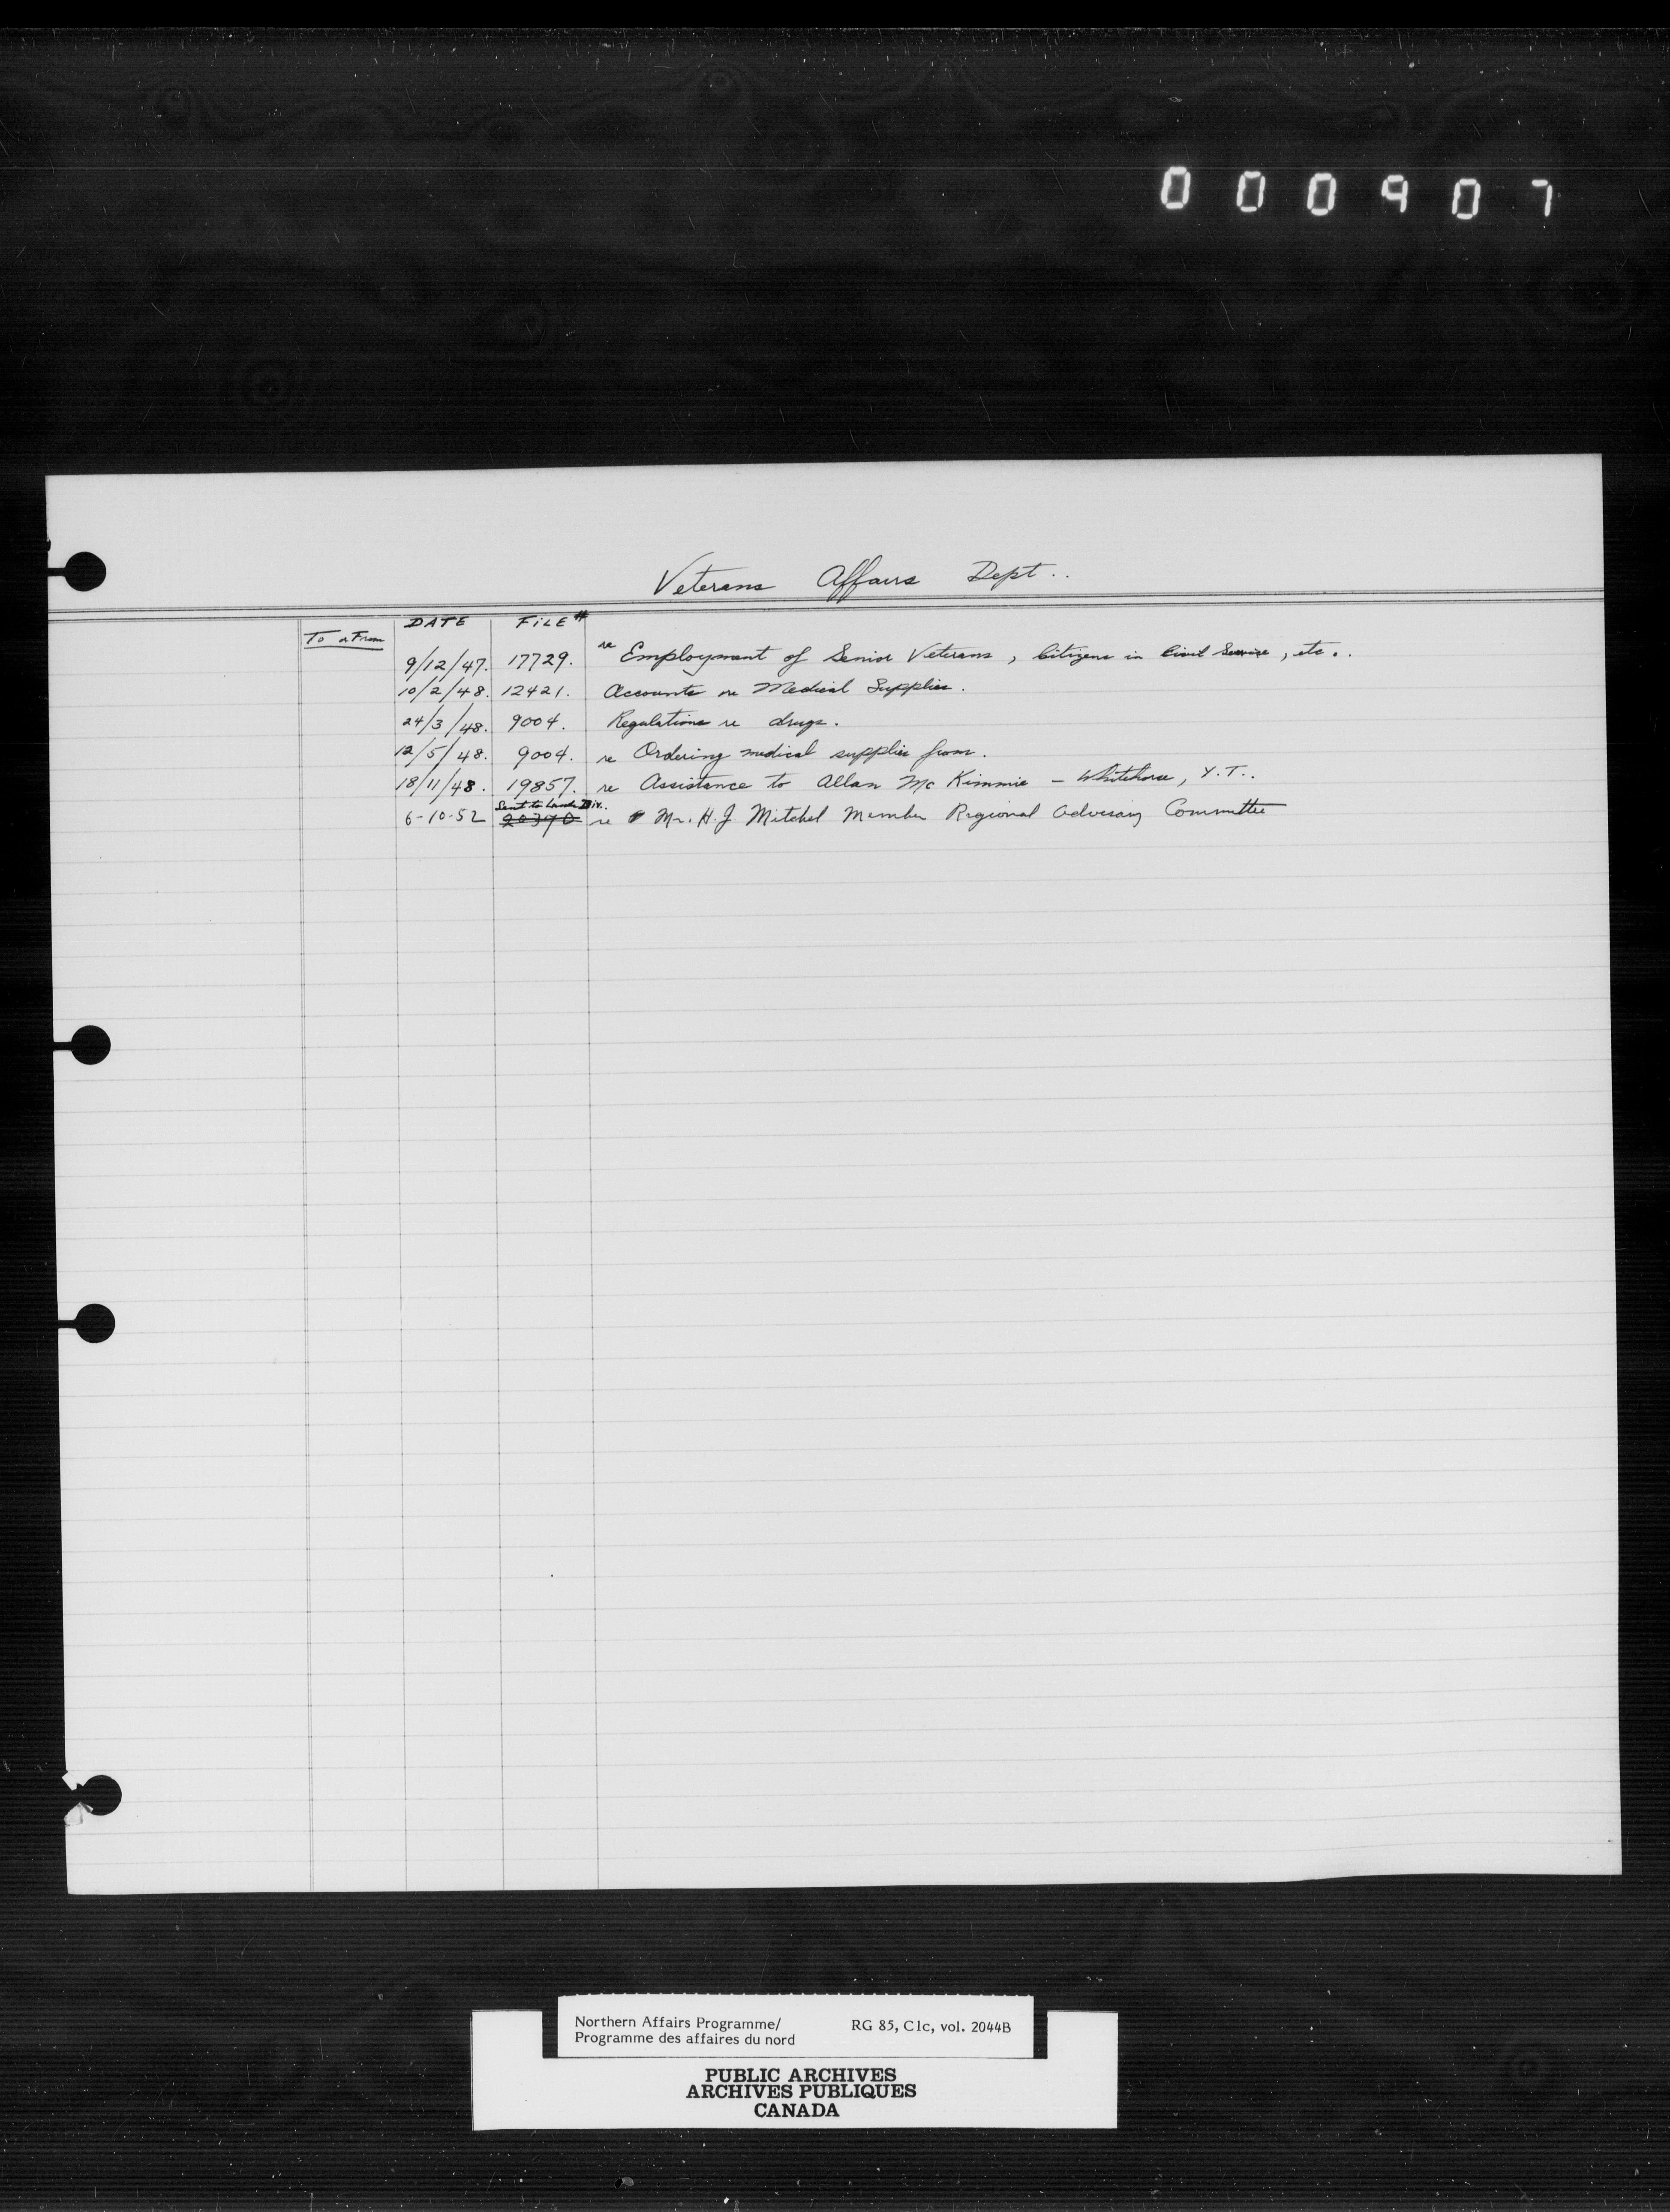 000907
Veterans Affairs Dept..
To or From DATE FILE #
9/12/47. 17729. re Employment of Senior Veterans, Citizens in Civil Service, etc..
10/2/48. 12421. Accounts re Medical Supplies.
24/3/48. 9004. Regulations re drugs.
12/5/48. 9004. re Ordering medical supplies from.
18/11/48. 19857. re Assistance to Allan McKimmie - Whitehorse, Y.T..
Sent to Lands Div.
6-10-52 20390 re Mr. H.J. Mitchel Member Regional Advisary Committee
Northern Affairs Programme/ RG 85, C1c, vol. 2044B
Programme des affaires du nord
PUBLIC ARCHIVES
ARCHIVES PUBLIQUES
CANADA